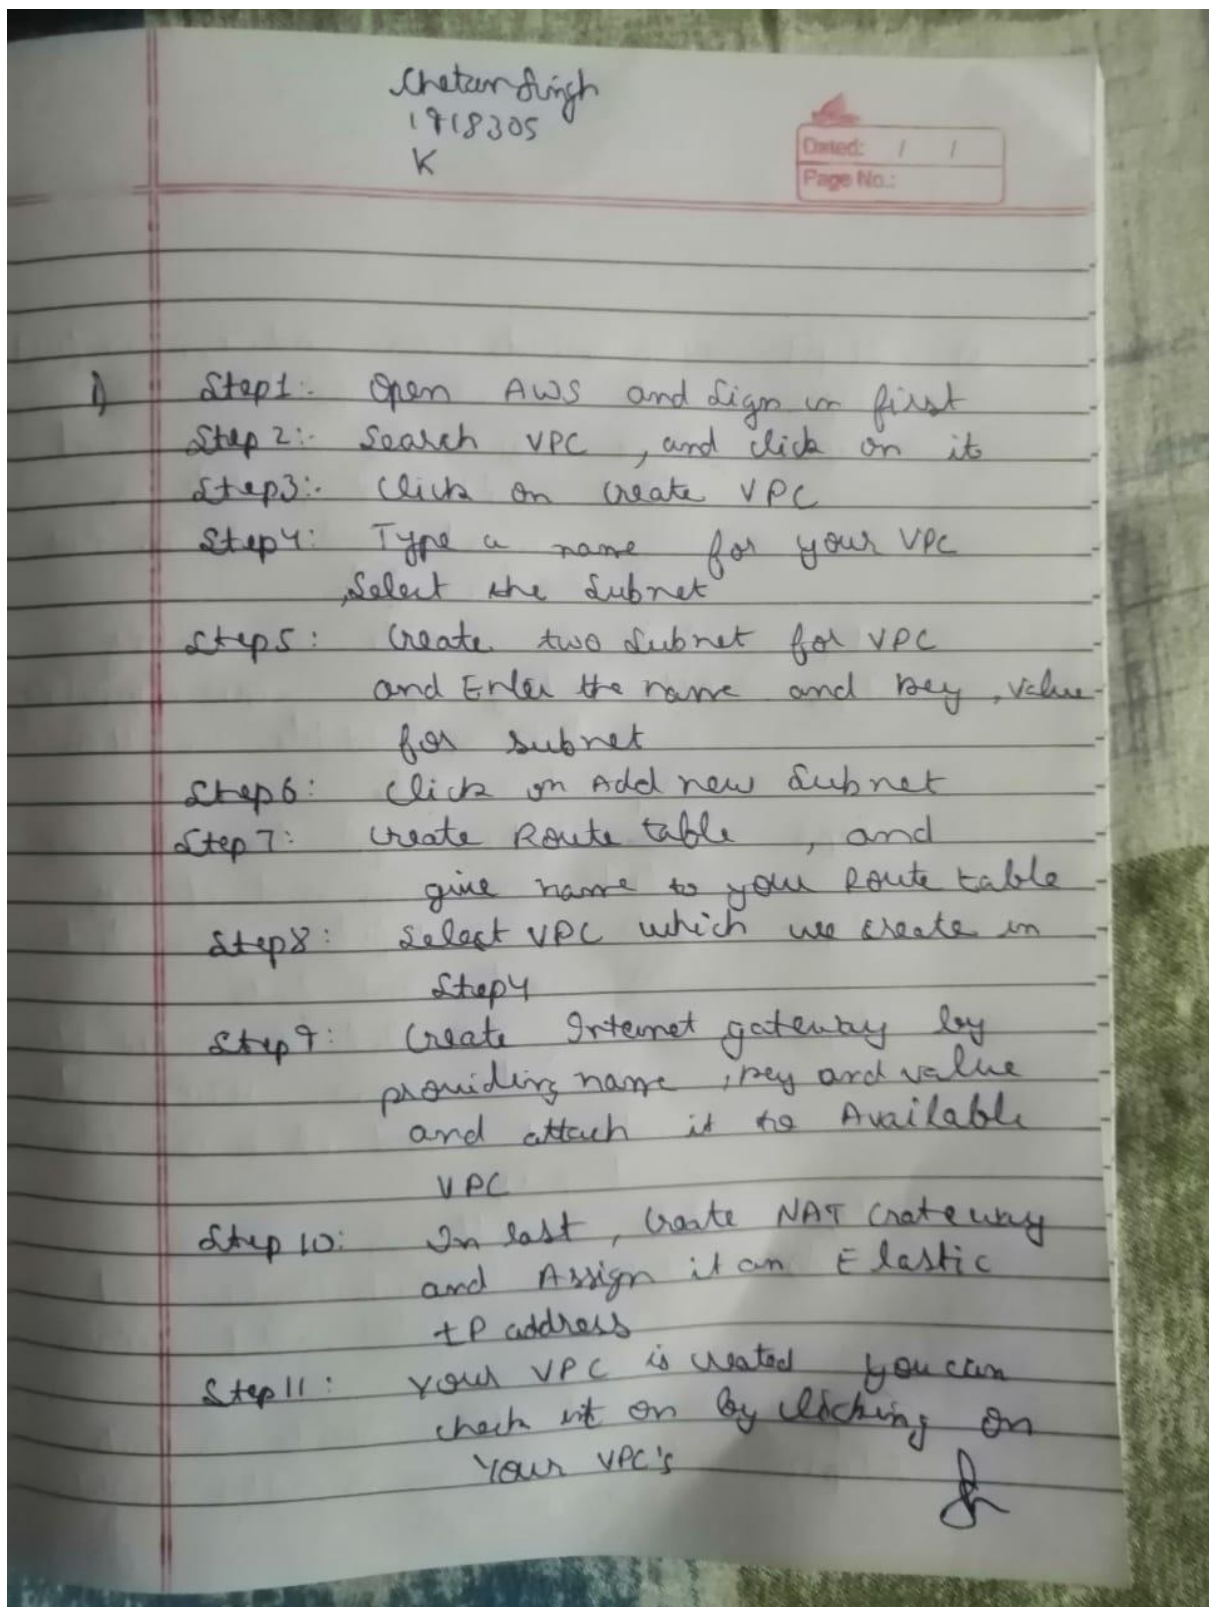 Chetan Singh
1918305
K
Dated: / /
Page No.:
1) Step1:- Open AWS and Sign in first
Step 2:- Search VPC , and click on it
Step3:- Click on Create VPC
Step4: Type a name for your VPC
,Select the Subnet
Step5: Create two Subnet for VPC
and Enter the name and key , value
for subnet
Step6: Click on Add new Subnet
Step 7: Create Route table , and
give name to your Route table
Step8: Select VPC which we create in
Step4
Step9: Create Internet gateway by
providing name , key and value
and attach it to Available
VPC
Step 10: In last , Create NAT Gateway
and Assign it an Elastic
IP address
Step11: Your VPC is created you can
check it on by clicking on
Your VPC's